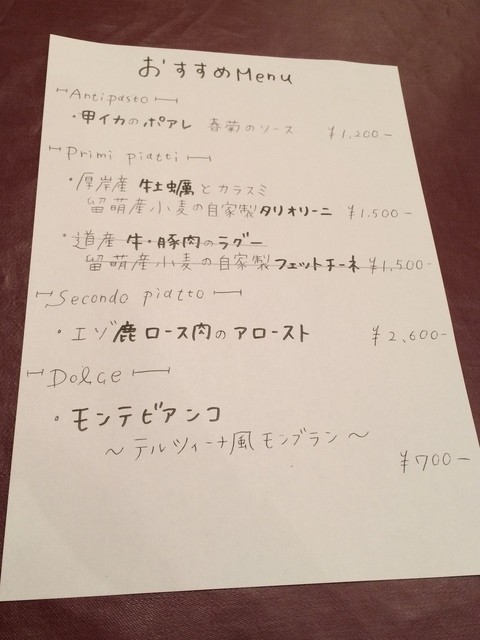 おすすめMenu
Antipasto
・甲イカのポアレ 春菊のソース ¥1,200-
Primi piatti
・厚岸産 牡蠣とカラスミ
留萌産小麦の自家製タリオリーニ ¥1,500-
・道産 牛・豚肉のラグー
留萌産小麦の自家製フェットチーネ ¥1,500-
Secondo piatto
・エゾ鹿ロース肉のアロースト ¥2,600-
Dolce
・モンテビアンコ
〜テルツィーナ風モンブラン〜
¥700-